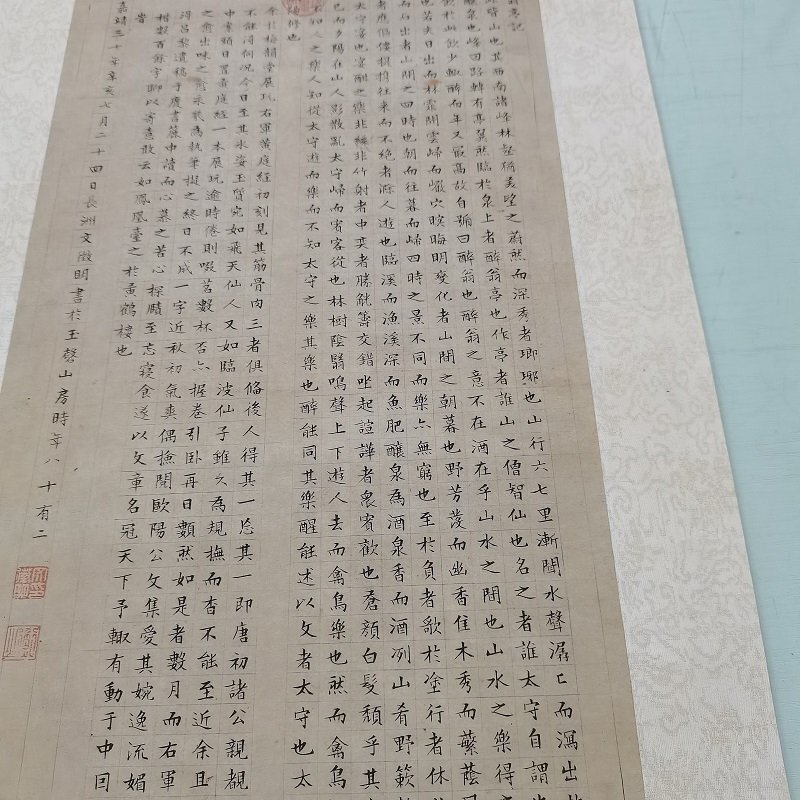 記
皆山也其西南諸峰林壑猶美望之蔚然而深秀者瑯琊也山行六七里漸聞水聲潺々而瀉出
釀泉也峰回路轉有亭翼然臨於泉上者醉翁亭也作亭者誰山之僧智仙也名之者誰太守自謂
飲於此飲少輒醉而年又最高故自號曰醉翁也醉翁之意不在酒在乎山水之間也山水之樂得
也若夫日出而林霏開雲歸而巖穴暝晦明變化者山間之朝暮也野芳發而幽香佳木秀而蘩蔭
而石出者山間之四時也朝而往暮而歸四時之景不同而樂亦無窮也至於負者歌於塗行者休
者應傴僂提攜往来而不絶者滁人遊也臨溪而漁溪深而魚肥釀泉為酒泉香而酒冽山肴野蔌
太守宴也宴酣之樂非絲非竹射者中奕者勝觥籌交錯坐起諠譁者衆賓歡也蒼顏白髮頹乎其
已而夕陽在山人影散亂太守歸而賓客從也林樹陰翳鳴聲上下遊人去而禽鳥樂也然而禽鳥
不知人之樂人知從太守遊而樂而不知太守之樂其樂也醉能同其樂醒能述以文者太守也太
脩也
余於梅韻堂展玩右軍黄庭經初刻見其筋骨肉三者俱備後人得其一忘其一即唐初諸公親覩
不能得何況今日至其氷姿玉質宛如飛天仙人又如臨波仙子雖久為規撫而杳不能至近余
中索頮日置黄庭經一本展玩逾時倦則啜茗數杯否亦握卷引卧再日數然如是者數月而右軍
之愈出味之愈永於為執筆擬之終日不成一字近秋初氣爽偶撿閱歐陽公文集愛其婉逸流媚
得昌黎遺稿于廢書簏中讀而心慕之苦心探賾至忘寢食遂以文章名冠天下予輒有動于中因
楷數百餘字聊以寄意敢云如鳳凰臺之於黄鶴樓也
嘉靖三十年辛亥七月二十四日長洲文徵明書於玉磬山房時年八十有二